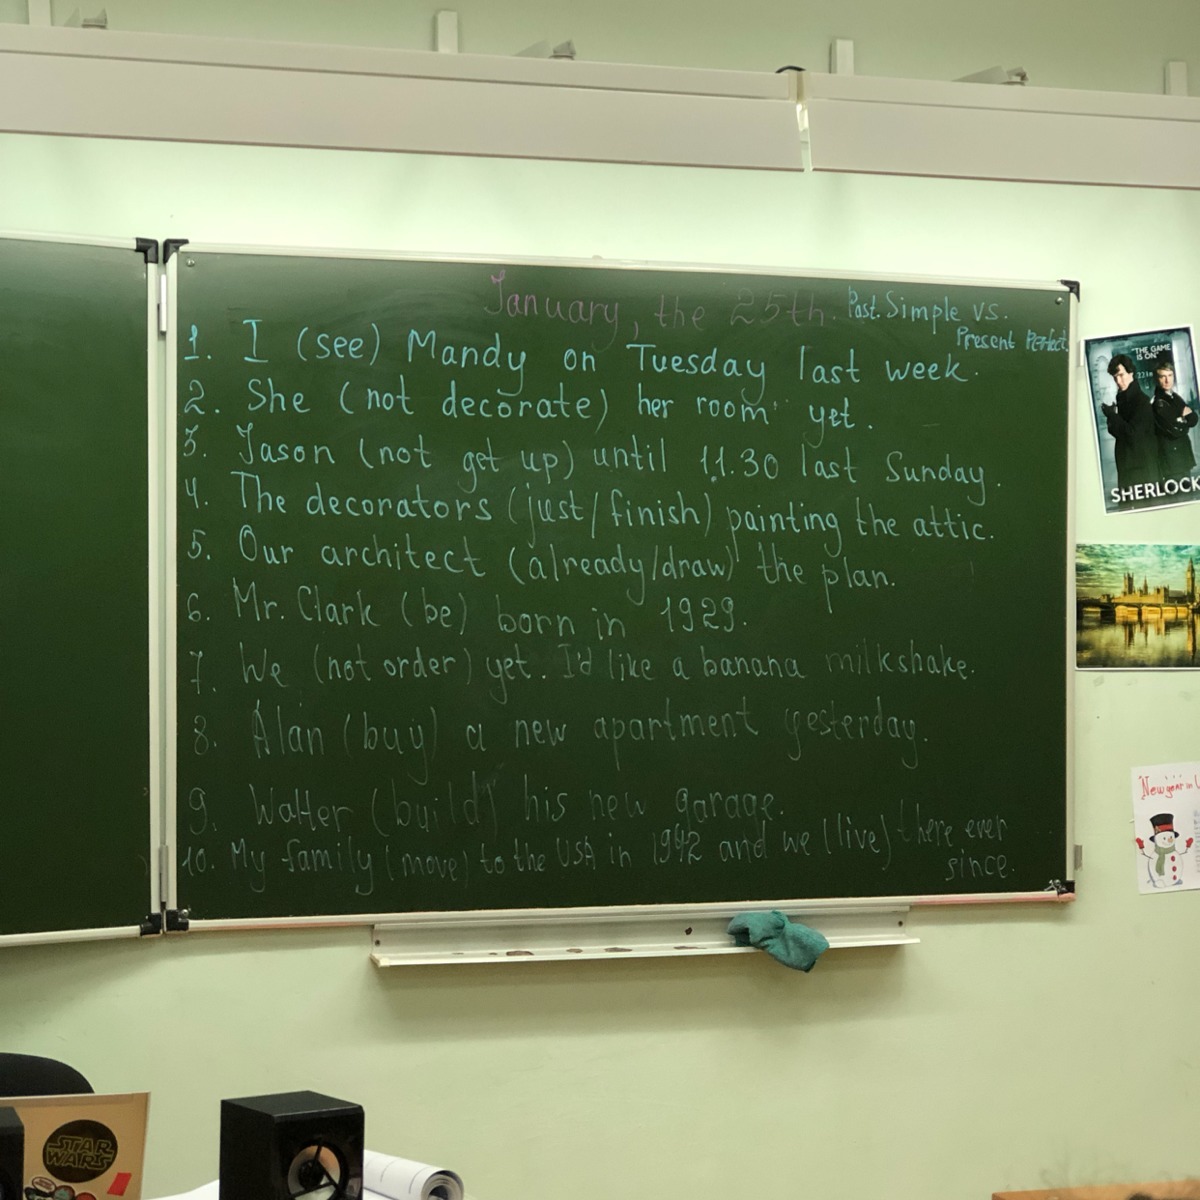 January, the 25th.
Past Simple vs.
Present Perfect
1. I (see) Mandy on Tuesday last week.
2. She (not decorate) her room yet.
3. Jason (not get up) until 11.30 last Sunday.
4. The decorators (just/finish) painting the attic.
5. Our architect (already/draw) the plan.
6. Mr. Clark (be) born in 1929.
7. We (not order) yet. I'd like a banana milkshake.
8. Alan (buy) a new apartment yesterday.
9. Walter (build) his new garage.
10. My family (move) to the USA in 1942 and we (live) there ever
since.
"THE GAME
IS ON"
221B
SHERLOCK
New year in
STAR
WARS